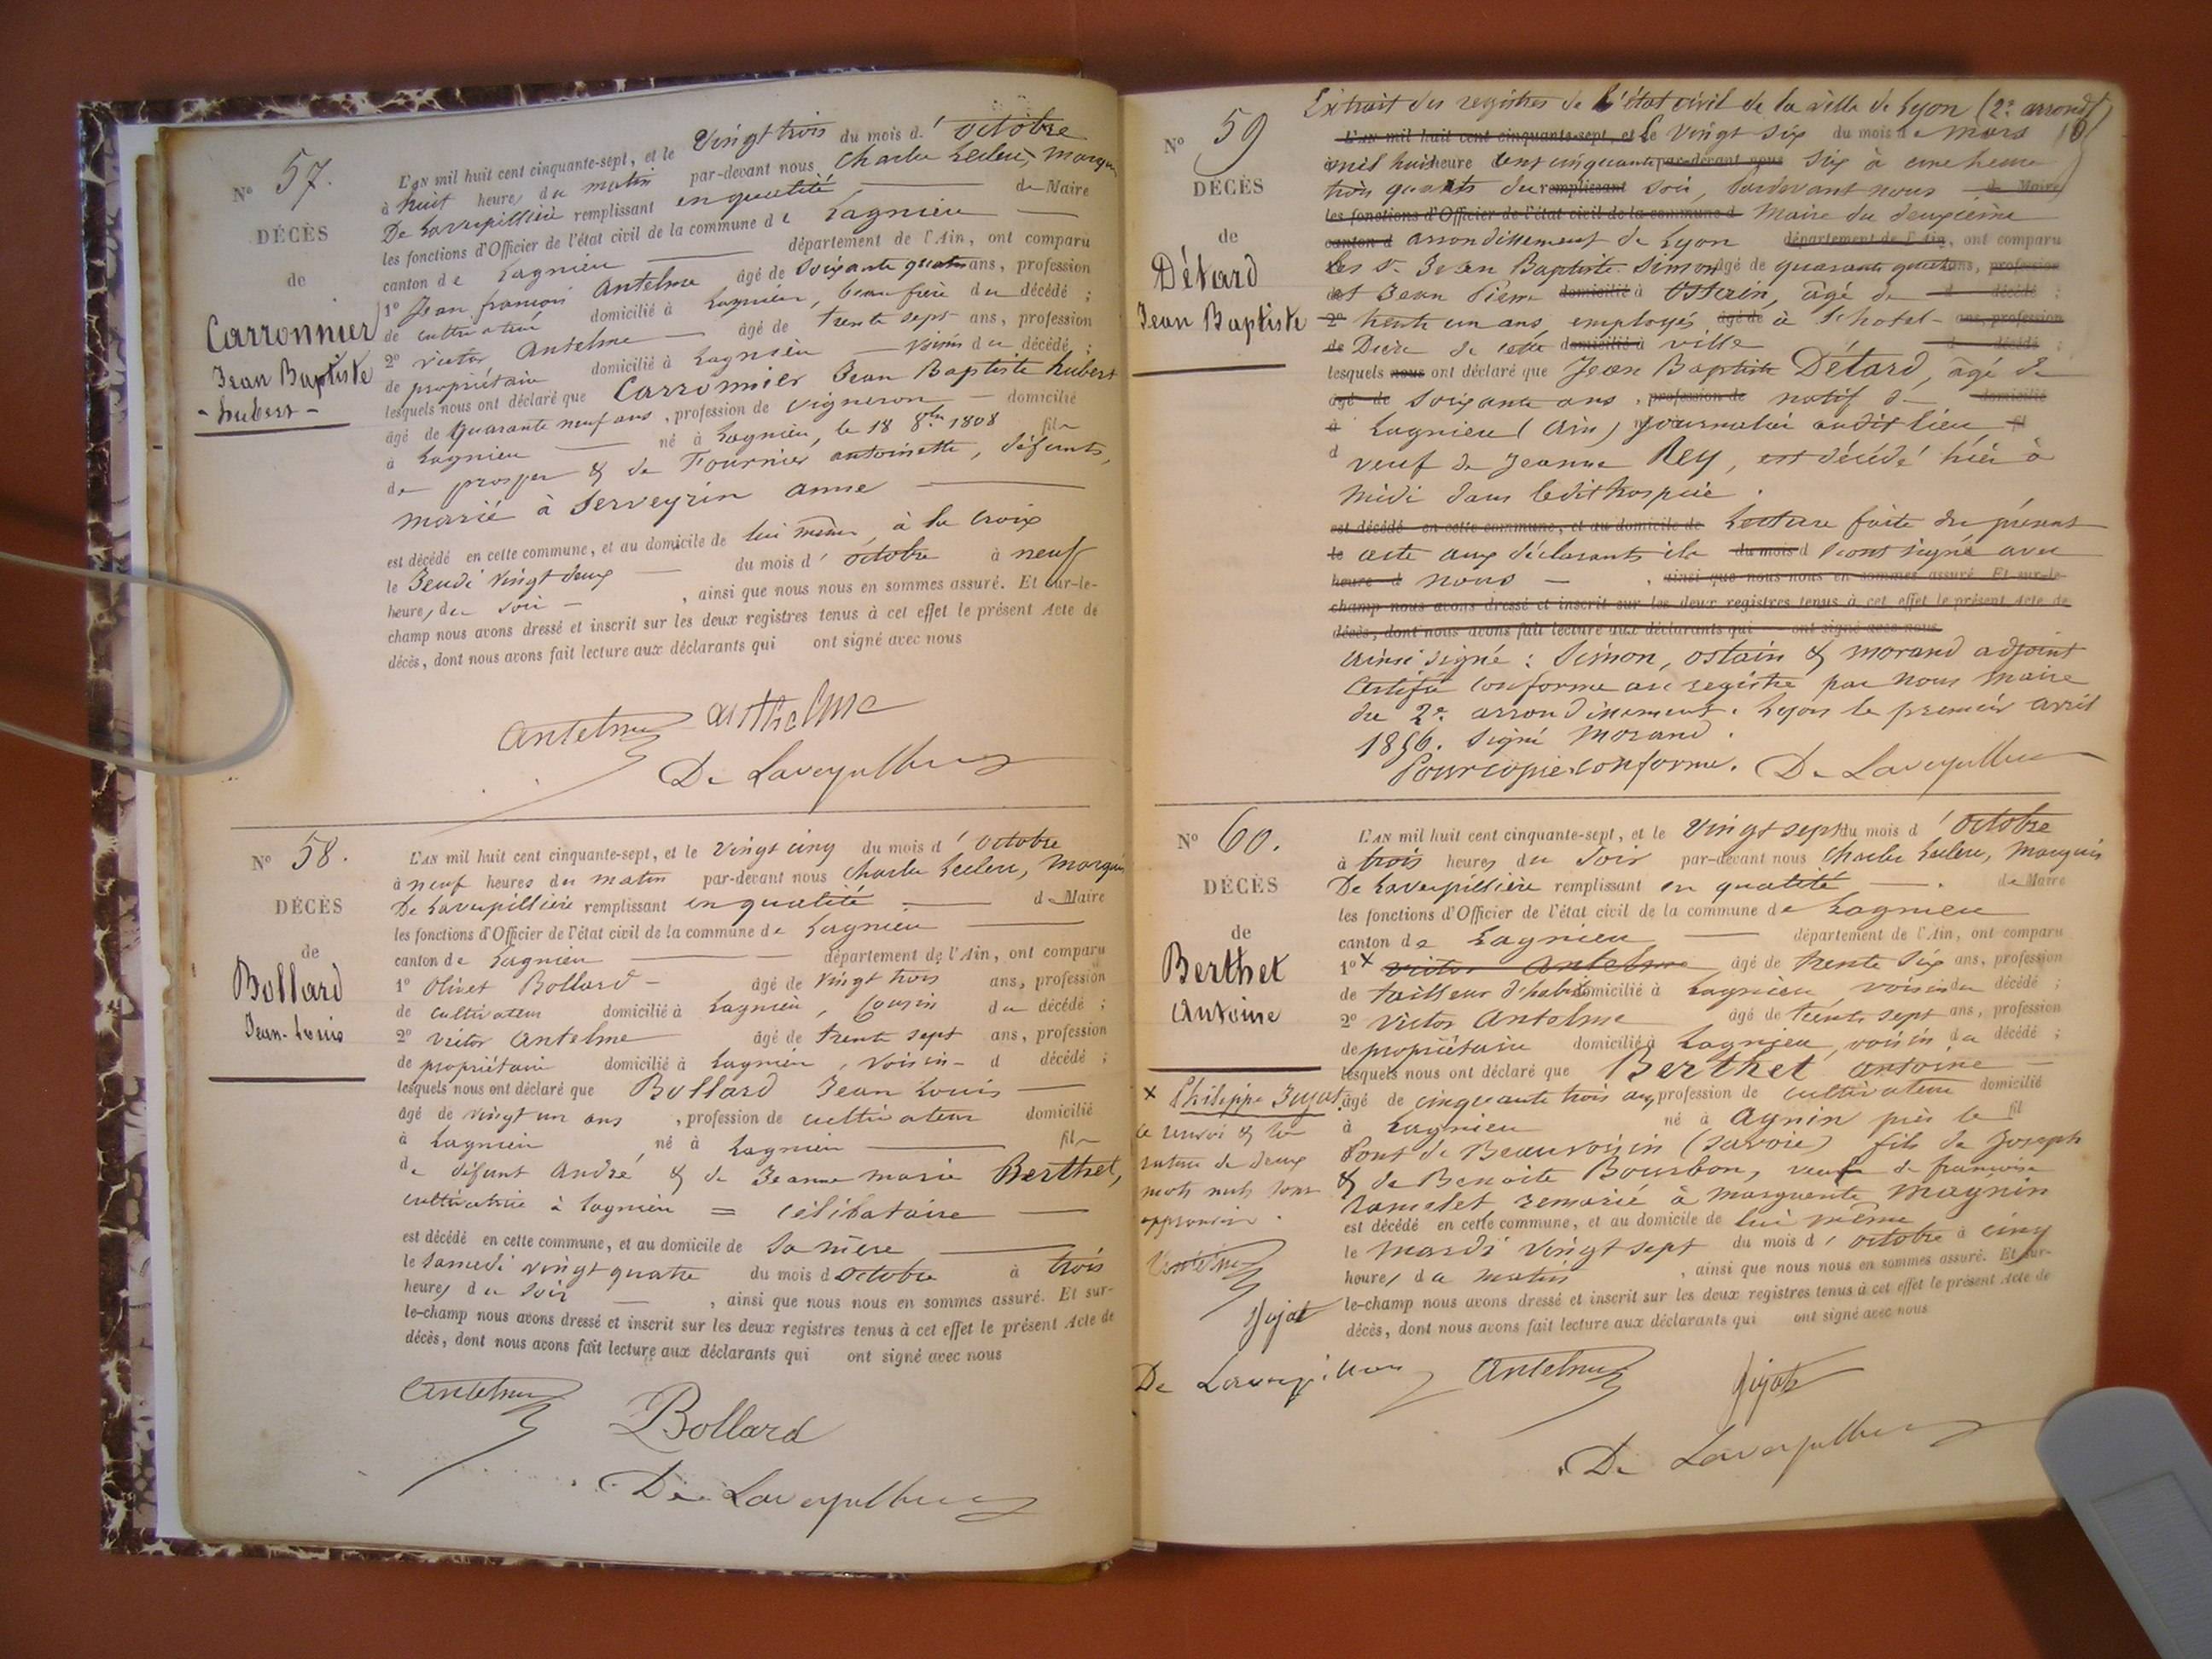 N° 57.
DÉCÈS
de
Carronnier
Jean Baptiste
- hubert -
L'AN mil huit cent cinquante-sept, et le Vingt trois du mois d' octobre
à huit heures du matin par-devant nous Charles Leclerc, Marquis
De Laverpillière remplissant en qualité de Maire
les fonctions d'Officier de l'état civil de la commune de Lagnieu
canton de Lagnieu département de l'Ain, ont comparu
1° Jean françois Antelme âgé de soixante quatre ans, profession
de cultivateur domicilié à Lagnieu, beau frère du décédé ;
2° victor Antelme âgé de trente sept ans, profession
de propriétaire domicilié à Lagnieu voisin du décédé ;
lesquels nous ont déclaré que Carronnier Jean Baptiste hubert
âgé de quarante neuf ans, profession de vigneron domicilié
à Lagnieu né à Lagnieu, le 18 8bre 1808 fils
de prosper & de Fournier antoinette, défunts,
marié à Serveyrin anne
est décédé en cette commune, et au domicile de lui même, à la croix
le Jeudi vingt deux du mois d' octobre à neuf
heures du soir , ainsi que nous nous en sommes assuré. Et sur-le-
champ nous avons dressé et inscrit sur les deux registres tenus à cet effet le présent Acte de
décès, dont nous avons fait lecture aux déclarants qui ont signé avec nous
antelme anthelme
De Laverpilliere
N° 58.
DÉCÈS
de
Bollard
Jean-Louis
L'AN mil huit cent cinquante-sept, et le vingt cinq du mois d' octobre
à neuf heures du matin par-devant nous Charles Leclerc, Marquis
De Laverpillière remplissant en qualité de Maire
les fonctions d'Officier de l'état civil de la commune de Lagnieu
canton de Lagnieu département de l'Ain, ont comparu
1° Olivet Bollard - âgé de vingt trois ans, profession
de cultivateur domicilié à Lagnieu, Cousin du décédé ;
2° victor antelme âgé de trente sept ans, profession
de propriétaire domicilié à Lagnieu, voisin - d décédé ;
lesquels nous ont déclaré que Bollard Jean Louis
âgé de vingt un ans , profession de cultivateur domicilié
à Lagnieu , né à Lagnieu fils
de défunt André & de Jeanne marie Berthet,
cultivatrice à Lagnieu = célibataire
est décédé en cette commune, et au domicile de sa mère
le samedi vingt quatre du mois d octobre à trois
heures du soir , ainsi que nous nous en sommes assuré. Et sur-
le-champ nous avons dressé et inscrit sur les deux registres tenus à cet effet le présent Acte de
décès, dont nous avons fait lecture aux déclarants qui ont signé avec nous
antelme
Bollard
De Laverpilliere
N° 59
DÉCÈS
de
Détard
Jean Baptiste
Extrait des registres de l'état civil de la ville de Lyon (2e arrondt)
L'AN mil huit cent cinquante-sept, et le Vingt six du mois de mars
mil huit heure cent cinquante par-devant nous six à une heure
trois quarts du remplissant soir, Pardevant nous de Maire
les fonctions d'Officier de l'état civil de la commune d Maire du deuxième
canton d arrondissement de Lyon département de l'Ain, ont comparu
les Sr Jean Baptiste Simon âgé de quarante quatre ans, profession
de et Jean Pierre domicilié à Osterin, âgé de d décédé ;
2° trente un ans, employés âgé de à l'hotel- ans, profession
de Dieu de cette domicilié à ville d décédé ;
lesquels nous ont déclaré que Jean Baptiste Détard, âgé de
âgé de soixante ans , profession de natif d- domicilié
à Lagnieu (Ain) Journalier audit lieu fil
d veuf de Jeanne Rey, est décédé hier à
midi dans ledit hospice.
est décédé en cette commune, et au domicile de Lecture faite du présent
le acte aux déclarants ils du mois d l'ont signé avec
heure d nous - , ainsi que nous nous en sommes assuré. Et sur-le-
champ nous avons dressé et inscrit sur les deux registres tenus à cet effet le présent Acte de
décès, dont nous avons fait lecture aux déclarants qui ont signé avec nous
ainsi signé : Simon, ostain & morand adjoint
Certifié conforme au registre par nous maire
du 2e arrondissement. Lyon le premier avril
1856. signé Morand.
Pour copie conforme. De Laverpilliere
N° 60.
DÉCÈS
de
Berthet
Antoine
L'AN mil huit cent cinquante-sept, et le Vingt sept du mois d' octobre
à trois heures du soir par-devant nous Charles Leclerc, Marquis
De Laverpillière remplissant en qualité de Maire
les fonctions d'Officier de l'état civil de la commune de Lagnieu
canton de Lagnieu département de l'Ain, ont comparu
1° x victor antelme âgé de trente six ans, profession
de tailleur d'habits domicilié à Lagnieu, voisin du décédé ;
2° victor antelme âgé de trente sept ans, profession
de propriétaire domicilié à Lagnieu, voisin du décédé ;
lesquels nous ont déclaré que Berthet antoine
âgé de cinquante trois ans, profession de cultivateur domicilié
à Lagnieu né à Agnin près le fil
Pont de Beauvoisin (Savoie) fils de Joseph
& de Benoite Bourbon, veuf de françoise
ramelet, remarié à marguerite magnin
est décédé en cette commune, et au domicile de lui même
le mardi vingt sept du mois d' octobre à cinq
heures du matin , ainsi que nous nous en sommes assuré. Et sur-
le-champ nous avons dressé et inscrit sur les deux registres tenus à cet effet le présent Acte de
décès, dont nous avons fait lecture aux déclarants qui ont signé avec nous
x Philippe Jujat.
ce renvoi & la
rature de deux
mots nuls sont
approuvés.
antelme
Jujat
De Laverpilliere antelme Jujat
De Laverpilliere